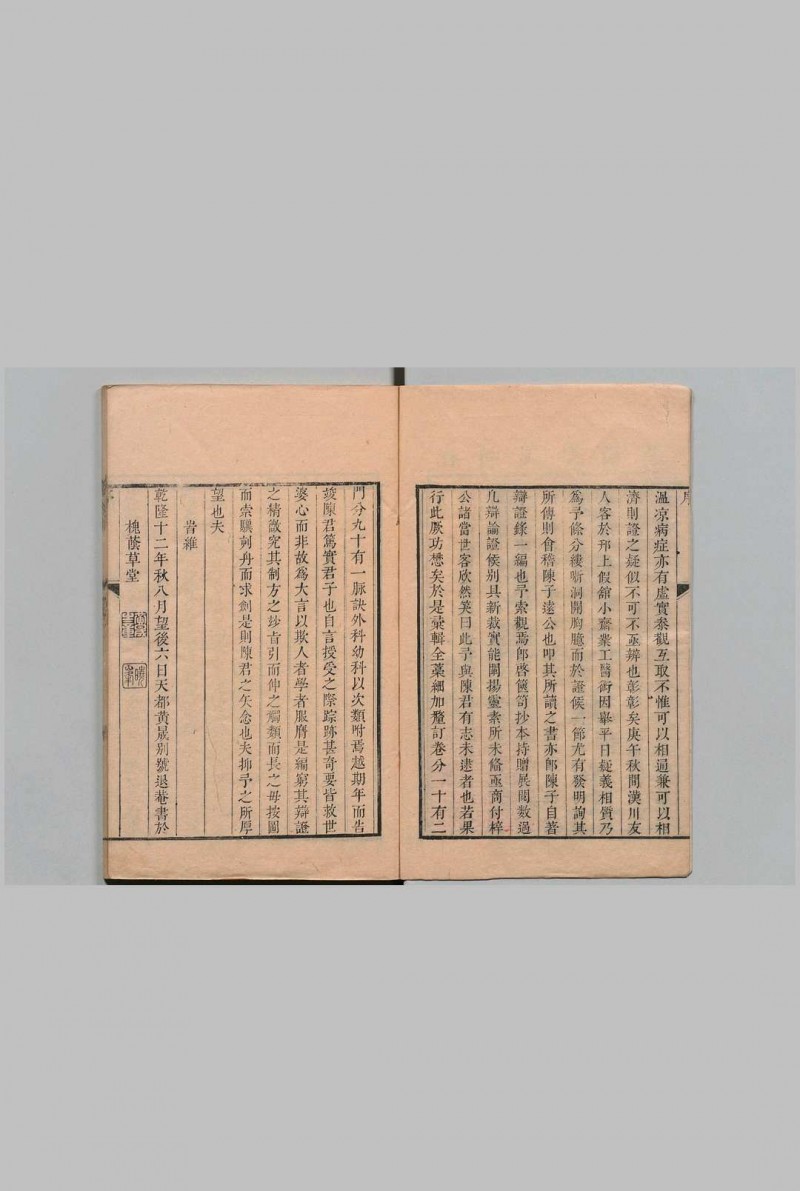 溫凉病症亦有虛實參觀互取不惟可以相通兼可以相
濟則證之疑似不可不亟辨也彰彰矣庚午秋間漢川友
人客於邗上假舘小齋業工醫術因舉平日疑義相質乃
爲予條分縷晰洞開胸臆而於證候一節尤有發明詢其
所傳則會稽陳子遠公也叩其所讀之書亦郎陳子自著
辯證錄一編也予索觀焉郎啓篋笥抄本持贈展閱數過
凡辯論證候别具新裁實能闡揚靈素所未備亟商付梓
公諸當世客欣然笑曰此予與陳君有志未逮者也若果
行此厥功懋矣於是彙輯全藁細加釐訂卷分一十有二
門分九十有一脉訣外科幼科以次類附焉越期年而告
竣陳君篤實君子也自言授受之際踪跡甚奇要皆救世
婆心而非故爲大言以欺人者學者服膺是編窮其辯證
之精微究其制方之玅旨引而伸之觸類而長之毋按圖
而索驥刻舟而求劍是則陳君之矢念也夫抑予之所厚
望也夫
旹維
乾隆十二年秋八月望後六日天都黃晟别號退菴書於
槐蔭草堂